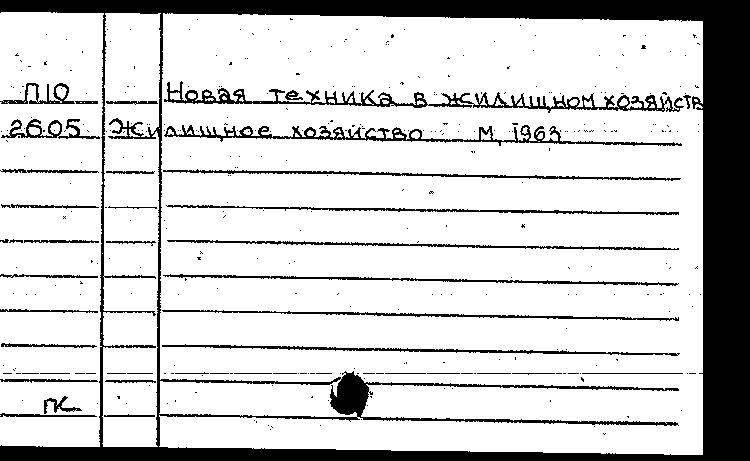 П10 Новая техника в жилищном хозяйств
2605 Жилищное хозяйство М, 1963
ПК